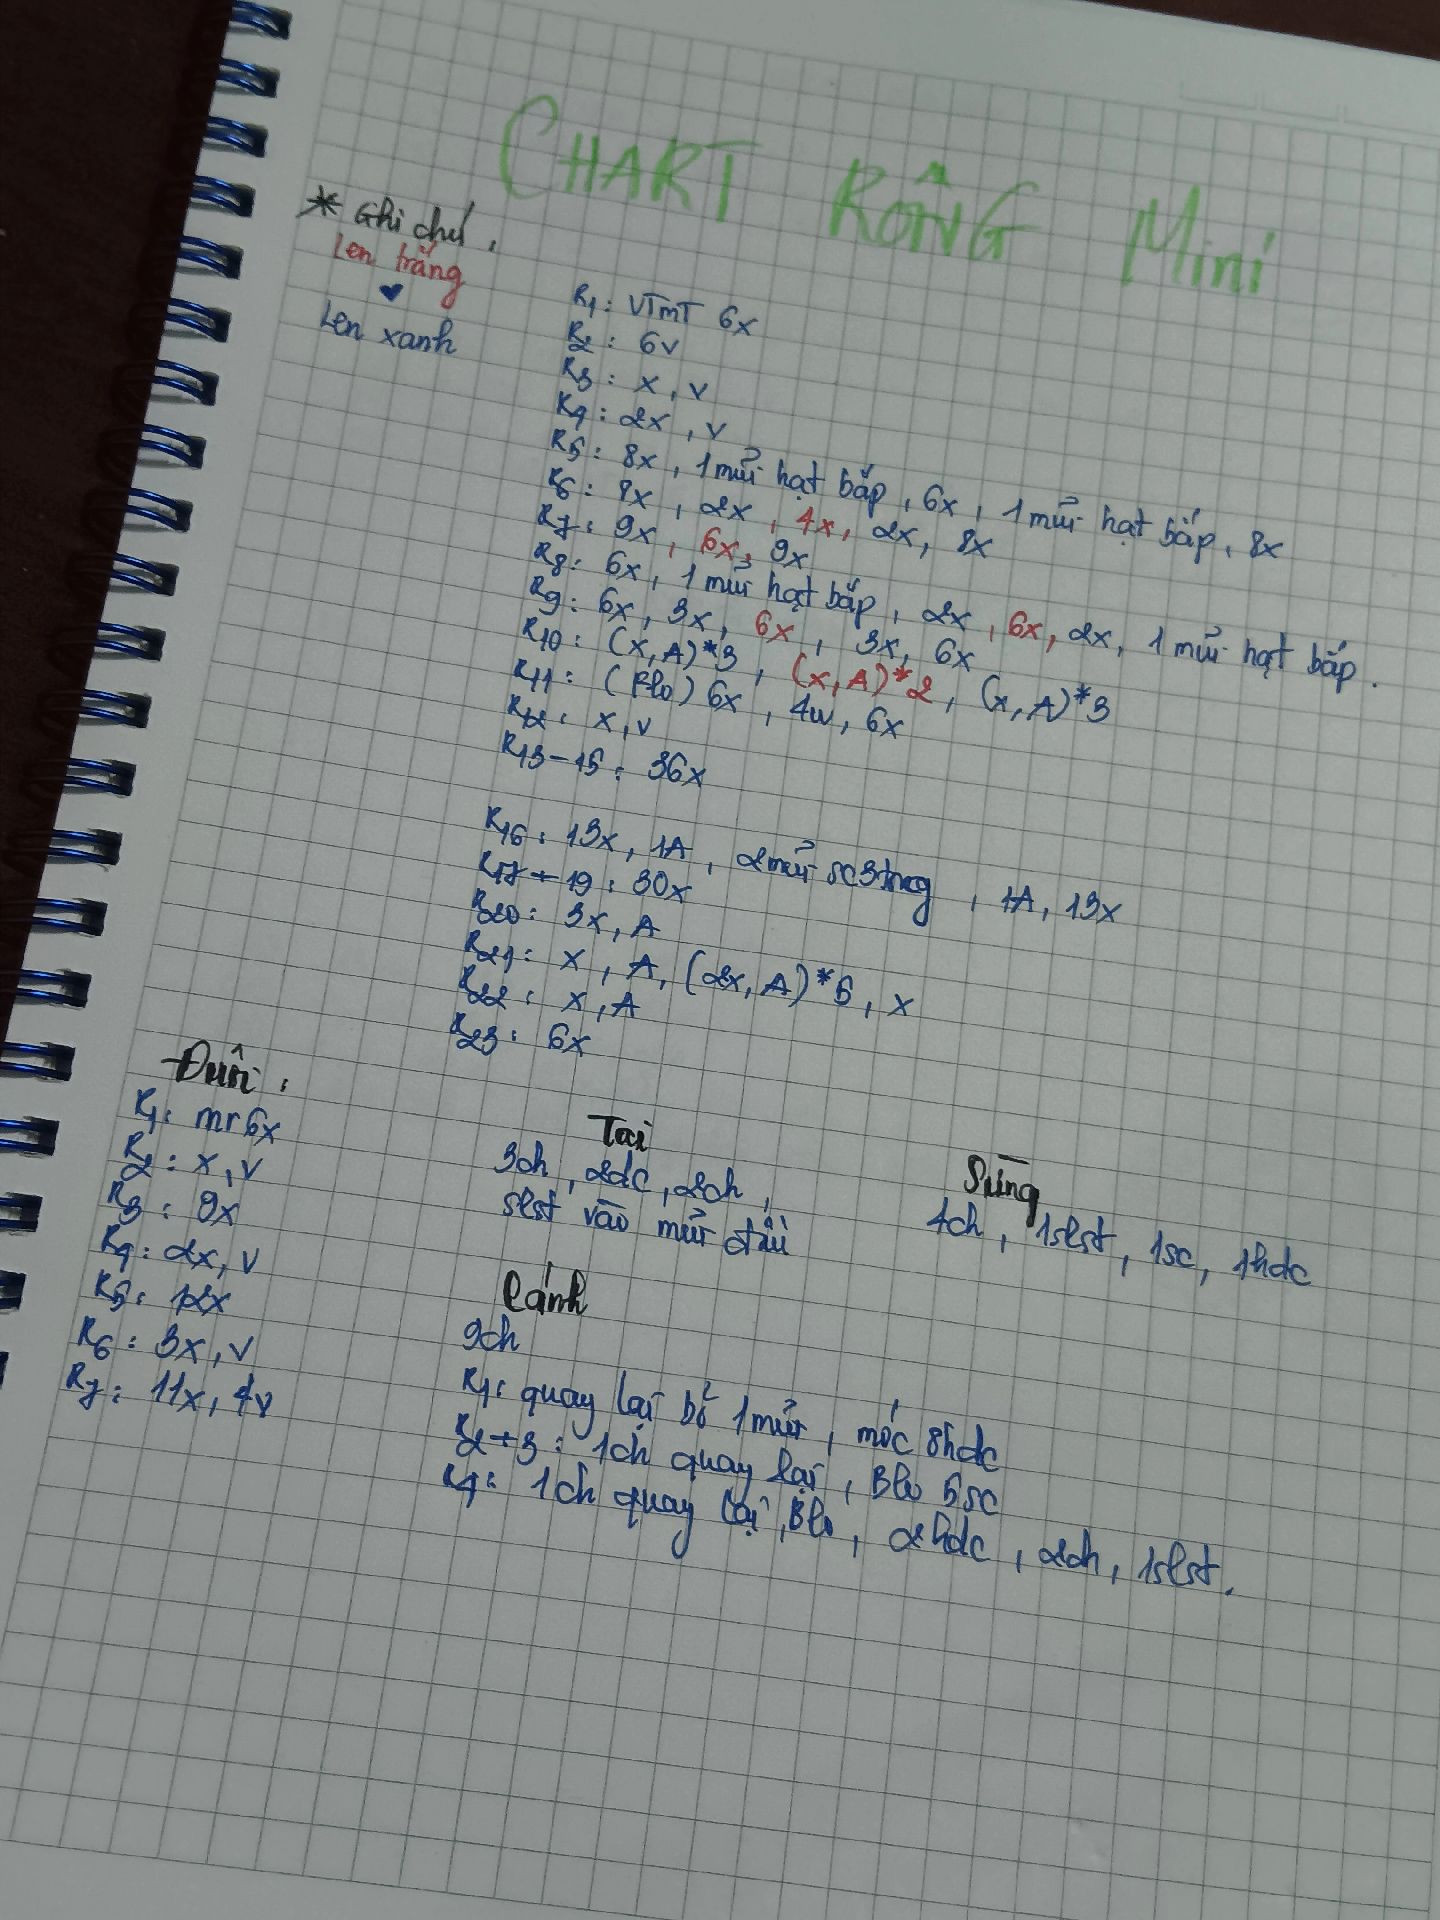 CHART RỒNG Mini
* Ghi chú:
Len trắng
Len xanh
R1: VTmT 6x
R2: 6v
R3: x, v
R4: 2x, v
R5: 8x, 1 mũi hạt bắp, 6x, 1 mũi hạt bắp, 8x
R6: 8x, 2x, 4x, 2x, 8x
R7: 9x, 6x, 9x
R8: 6x, 1 mũi hạt bắp, 2x, 6x, 2x, 1 mũi hạt bắp.
R9: 6x, 3x, 6x, 3x, 6x
R10: (x, A)*3, (x, A)*2, (x, A)*3
R11: (Flo) 6x, 4w, 6x
R12: x, v
R13-15: 36x
R16: 13x, 1A, 2 mũi sc3tog, 1A, 13x
R17-19: 30x
R20: 3x, A
R21: x, A, (2x, A)*5, x
R22: x, A
R23: 6x
Đuôi:
R1: mr 6x
R2: x, v
R3: 9x
R4: 2x, v
R5: 12x
R6: 3x, v
R7: 11x, 4v
Tai
3ch, 2dc, 2ch,
slst vào mũi đầu
Sừng
4ch, 1slst, 1sc, 1hdc
Cánh
9ch
R1: quay lại bỏ 1 mũi, móc 8hdc
R2+3: 1ch quay lại, Blo 5sc
R4: 1ch quay lại, Blo, 2hdc, 2ch, 1slst.